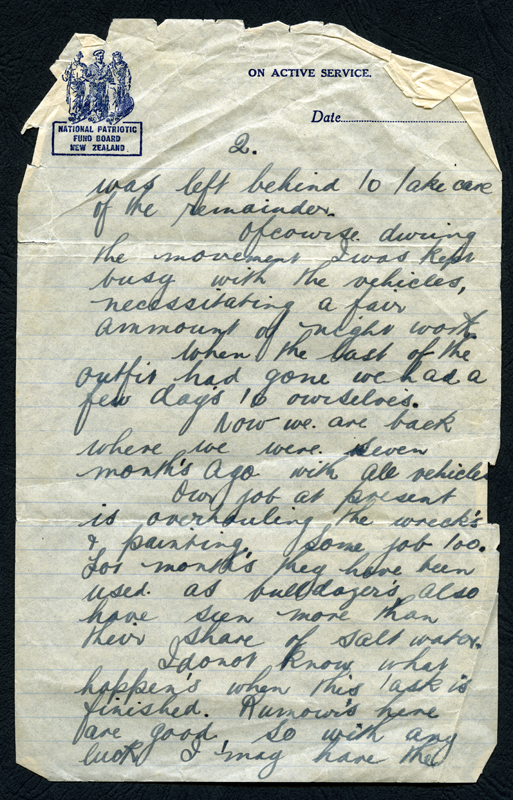 ON ACTIVE SERVICE.
NATIONAL PATRIOTIC
FUND BOARD
NEW ZEALAND.
Date
2.
was left behind to take care
of the remainder.
Ofcourse during
the movement I was kept
busy with the vehicles,
necessitating a fair
ammount of night work.
When the last of the
outfit had gone we had a
few day's to ourselves.
Now we are back
where we were seven
month's ago with all vehicles
Our job at present
is overhauling the wreck's
& painting. Some job too.
For month's they have been
used as bulldozer's also
have seen more than
their share of salt water.
I do not know what
happen's when this task is
finished. Rumour's here
are good so with any
luck I may have the